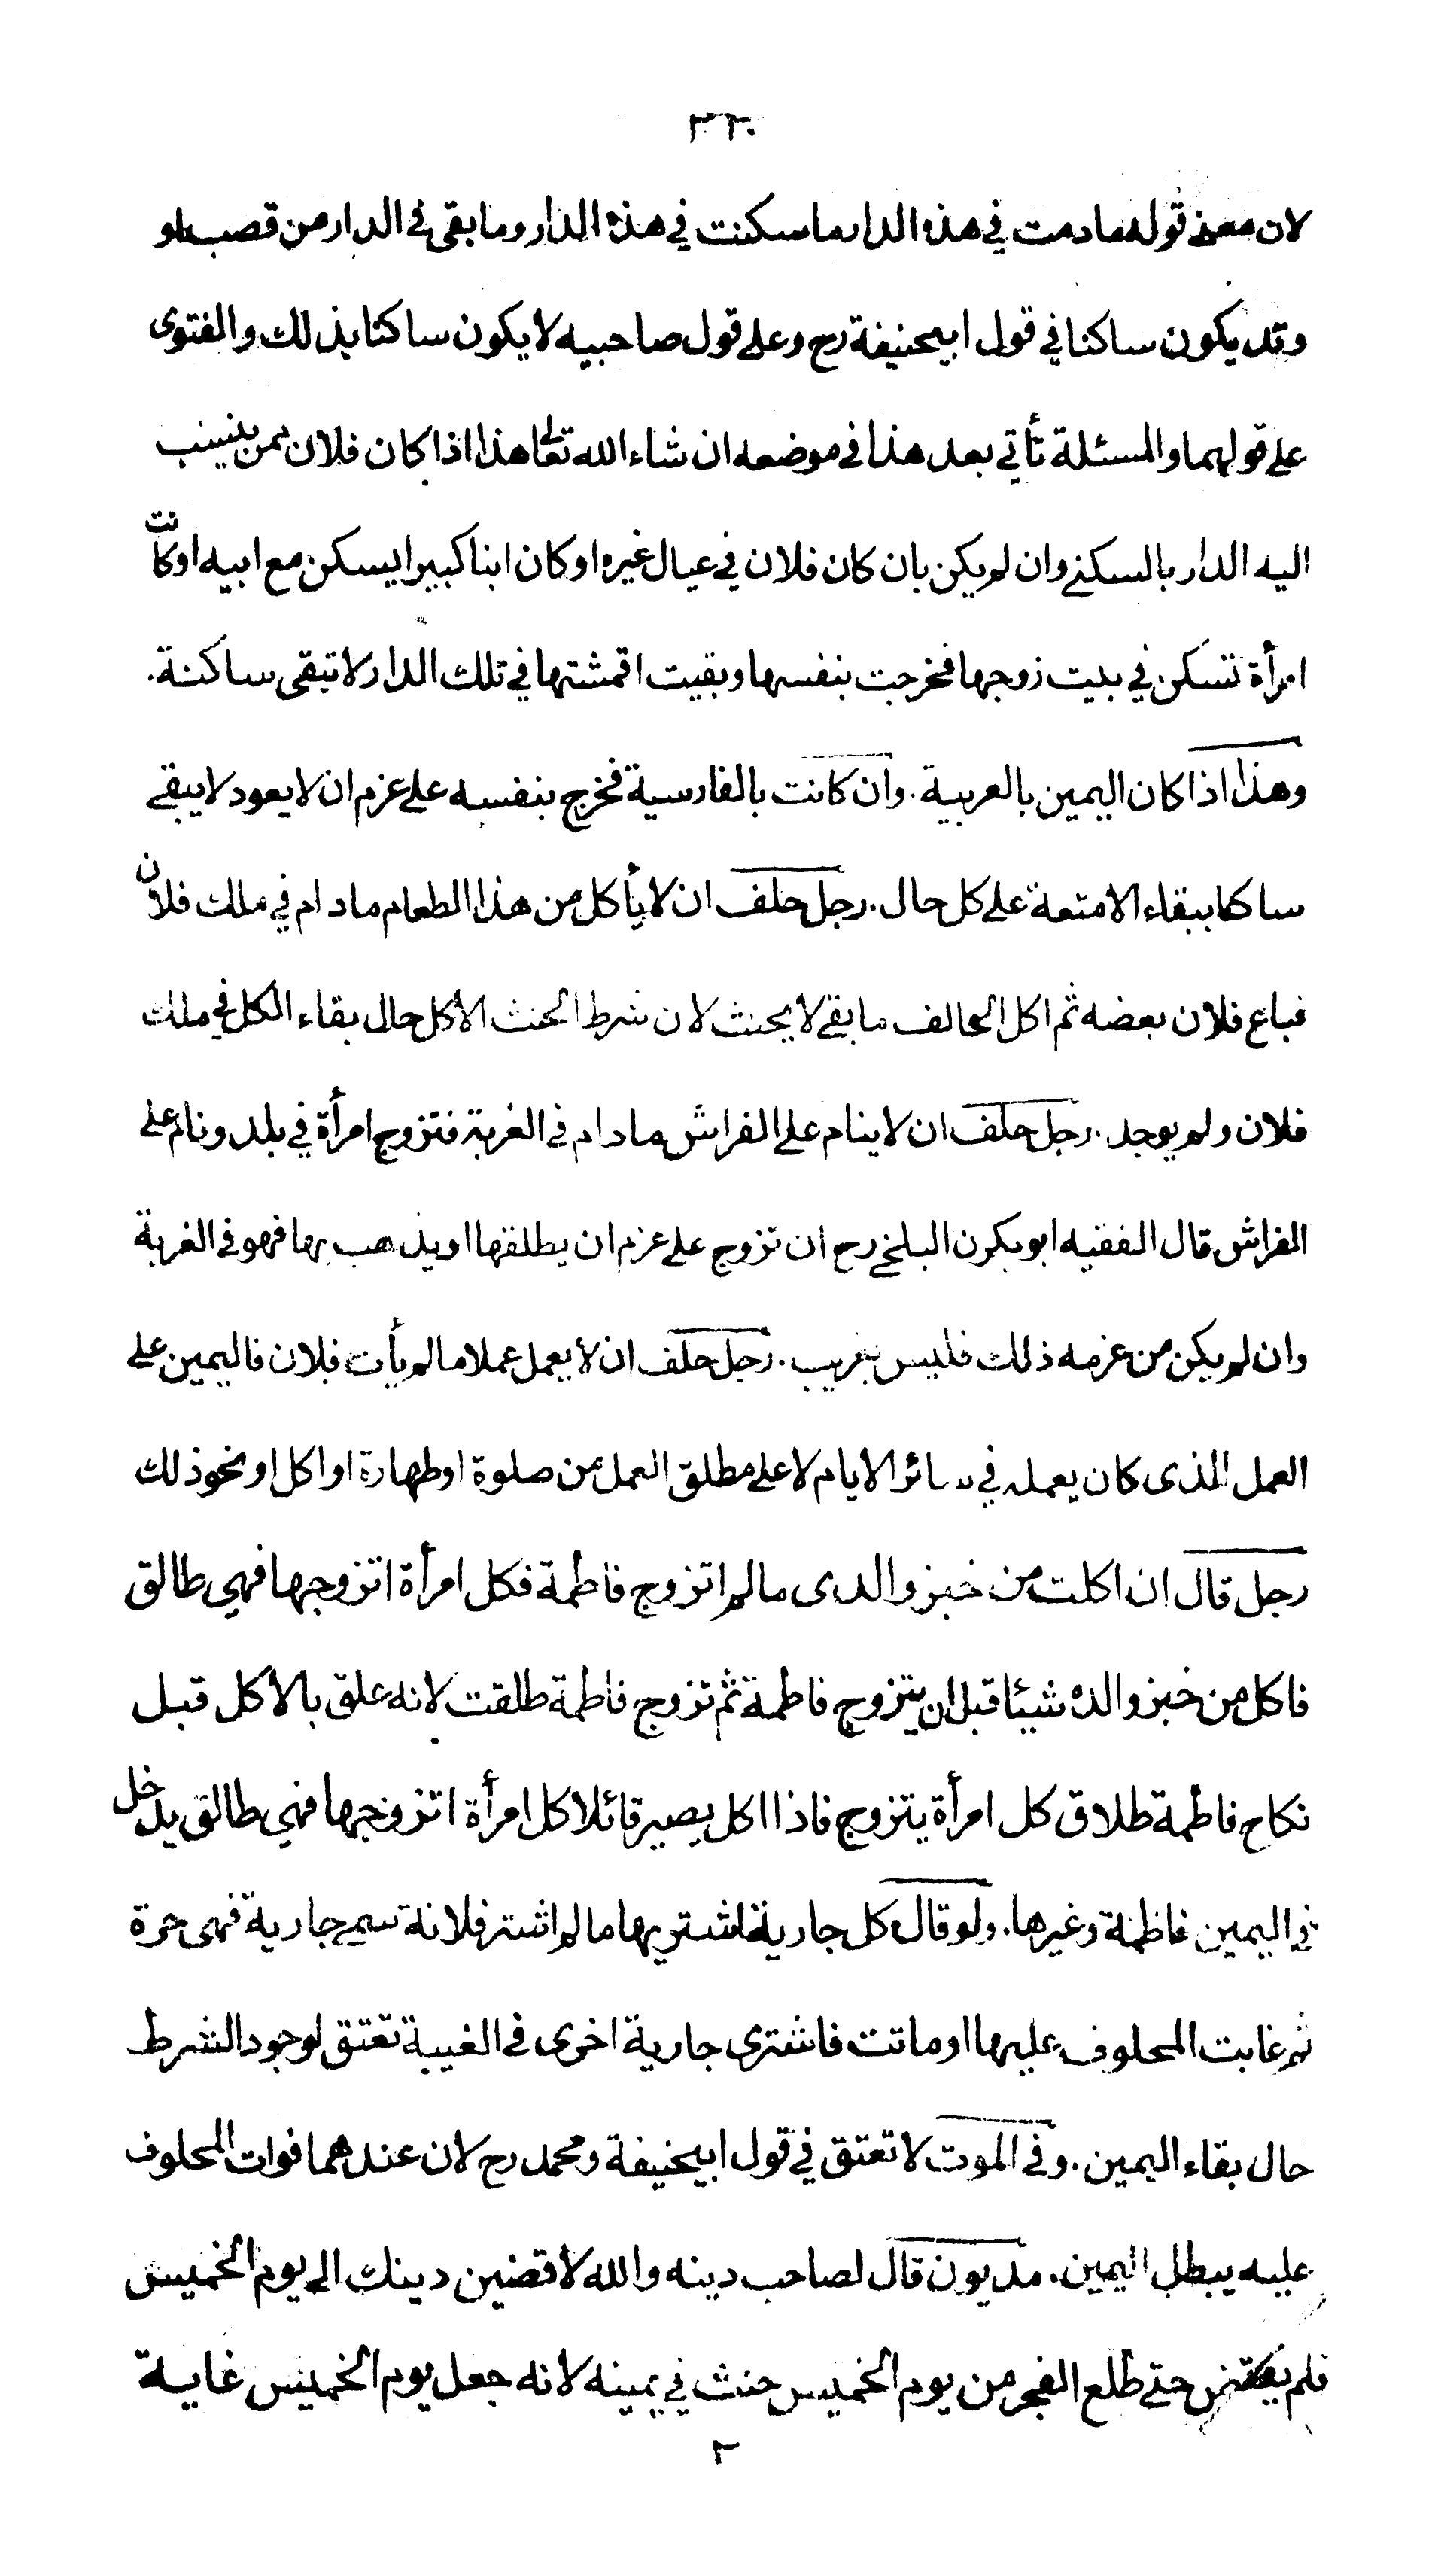 ٣٣٠
لان معنى قوله مادمت في هذه الدار ما سكنت في هذه الدار وما بقى في الدار من قصب او
وتد يكون ساكنا في قول ابيحنيفة رح وعلى قول صاحبيه لا يكون ساكنا بذلك والفتوى
على قولهما والمسئلة تأتي بعد هذا في موضعه ان شاء الله تعالى هذا اذا كان فلان ممن ينسب
اليه الدار بالسكنى وان لم يكن بان كان فلان في عيال غيره او كان ابنا كبيرا يسكن مع ابيه او كانت
امرأة تسكن في بيت زوجها فخرجت بنفسها وبقيت اقمشتها في تلك الدار لا تبقى ساكنة.
وهذا اذا كان اليمين بالعربية. وان كانت بالفارسية فخرج بنفسه على عزم ان لا يعود لا يبقى
ساكنا ببقاء الامتعة على كل حال. رجل حلف ان لا يأكل من هذا الطعام مادام في ملك فلان
فباع فلان بعضه ثم اكل الحالف ما بقى لا يحنث لان شرط الحنث الأكل حال بقاء الكل في ملك
فلان ولم يوجد. رجل حلف ان لا ينام على الفراش مادام في الغربة فتزوج امرأة في بلد ونام على
الفراش قال الفقيه ابو بكرن البلخي رح ان تزوج على عزم ان يطلقها او يذهب بها فهو في الغربة
وان لم يكن من عزمه ذلك فليس بغريب. رجل حلف ان لا يعمل عملا ما لم يأت فلان فاليمين على
العمل الذى كان يعمله في سائر الايام لا على مطلق العمل من صلوة او طهارة او اكل او نحو ذلك
رجل قال ان اكلت من خبز والدى ما لم اتزوج فاطمة فكل امرأة اتزوجها فهي طالق
فاكل من خبز والده شيئا قبل ان يتزوج فاطمة ثم تزوج فاطمة طلقت لانه علق بالاكل قبل
نكاح فاطمة طلاق كل امرأة يتزوج فاذا اكل يصير قائلا كل امرأة اتزوجها فهي طالق يدخل
في اليمين فاطمة وغيرها. ولو قال كل جارية اشتريها ما لم اشتر فلانة سمى جارية فهى حرة
ثم غابت المحلوف عليها او ماتت فاشترى جارية اخرى في الغيبة تعتق لوجود الشرط
حال بقاء اليمين. وفي الموت لا تعتق في قول ابيحنيفة ومحمد رح لان عندهما فوات المحلوف
عليه يبطل اليمين. مديون قال لصاحب دينه والله لأقضين دينك الى يوم الخميس
فلم يقض حتى طلع الفجر من يوم الخميس حنث في يمينه لانه جعل يوم الخميس غاية
٢